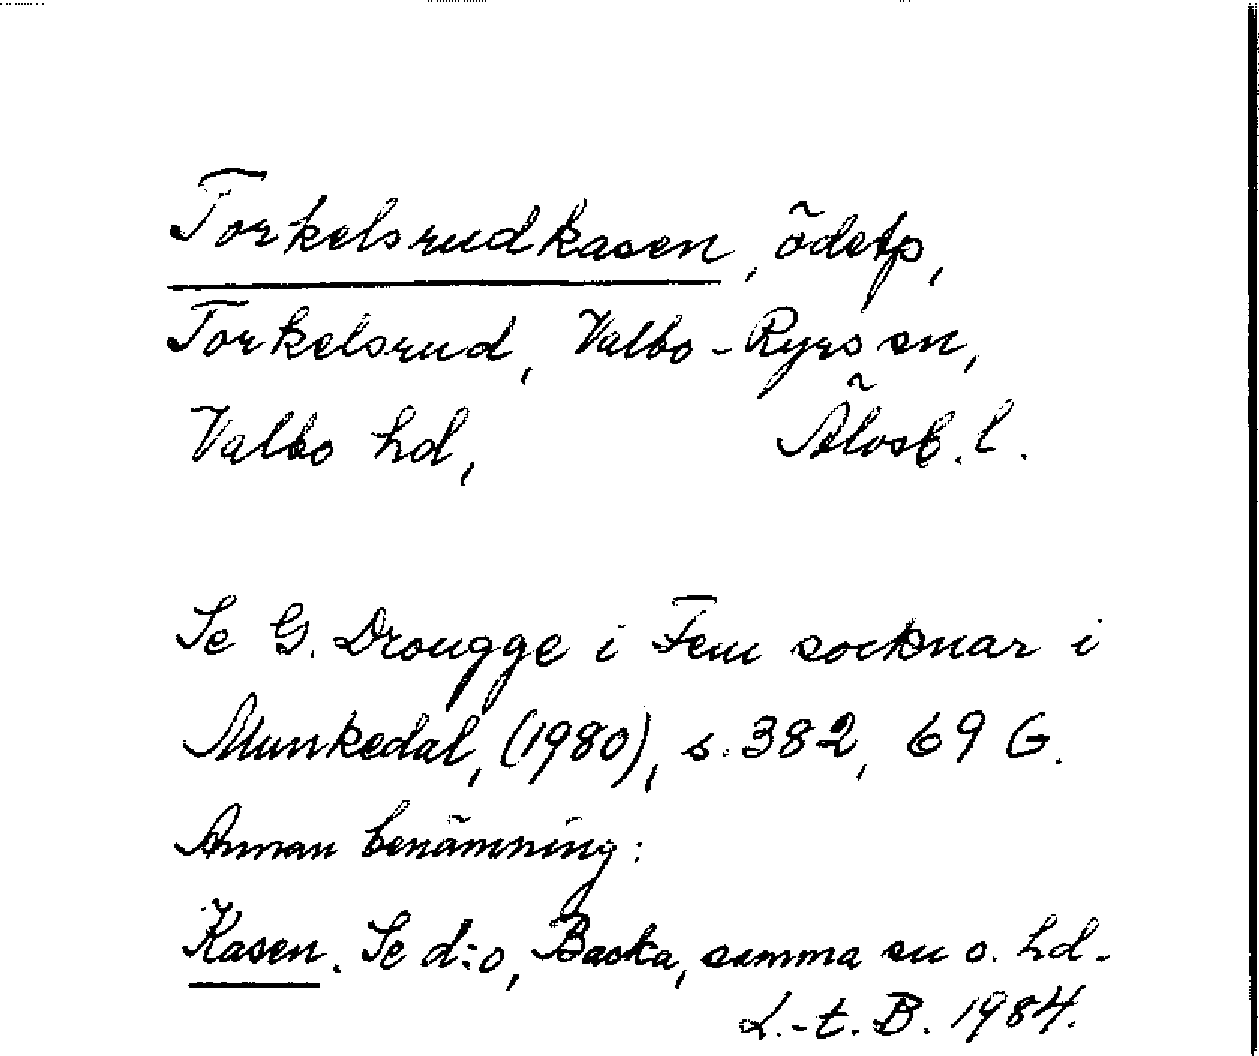 Torkelsrudkasen, ödetp,
Torkelsrud, Valbo-Ryrs sn,
Valbo hd, Älvsb. l.
Se G. Drougge i Fem socknar i
Munkedal, (1980), s. 382, 69 G.
Annan benämning:
Kasen. Se d:o, Backa, samma sn o. hd.
L.-t. B. 1984.